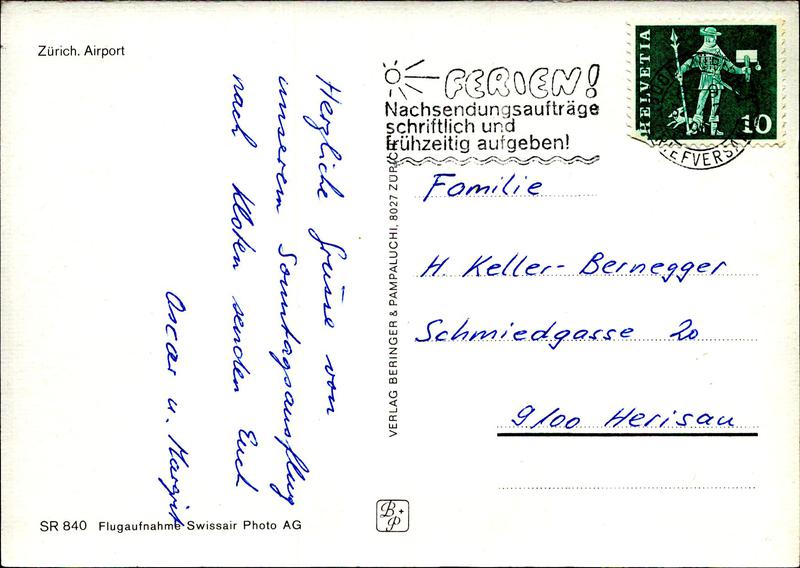 Zürich. Airport
Herzliche Grüsse von
unserem Sonntagsausflug
nach Kloten senden Euch
Oscar u. Margrit
SR 840 Flugaufnahme Swissair Photo AG
VERLAG BERINGER & PAMPALUCHI, 8027 ZÜRICH
B+P
FERIEN!
Nachsendungsaufträge
schriftlich und
frühzeitig aufgeben!
HELVETIA
10
BRIEFVERSAND
Familie
H. Keller-Bernegger
Schmiedgasse 20
9100 Herisau